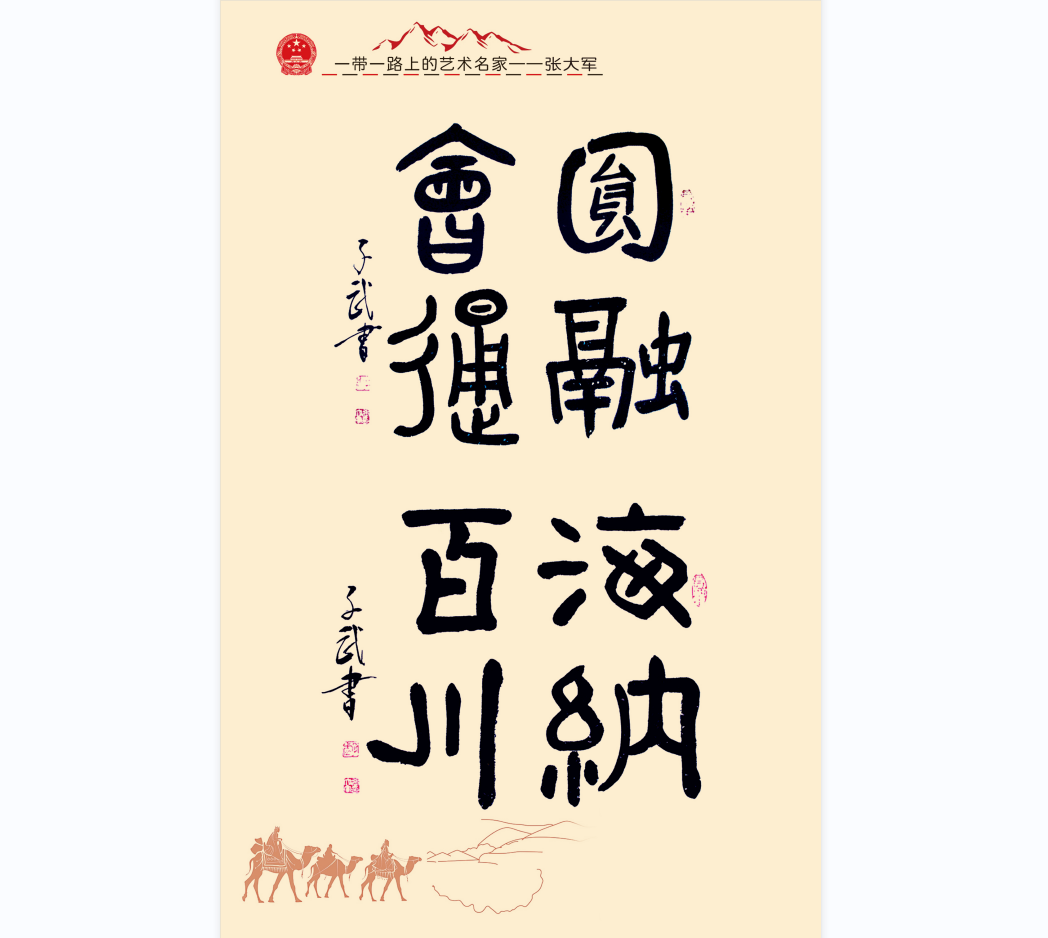 一带一路上的艺术名家——张大军
圓融
會通
子武書
海納
百川
子武書